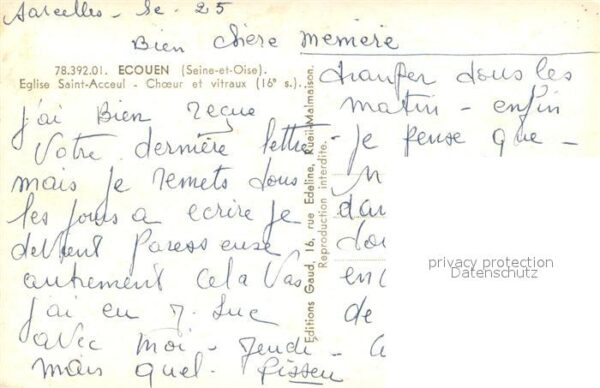 Sarcelles - le 25
Bien chère memère
78.392.01. ECOUEN (Seine-et-Oise).
Eglise Saint-Acceul - Chœur et vitraux (16e s.).
j'ai Bien reçue
Votre dernière lettre -
mais je remets tous
les jours a ecrire je
devient Paresseuse
autrement cela Vas
j'ai eu J. Luc
avec moi - Jeudi -
mais quel.
Editions Gaud, 16, rue Edeline, Rueil-Malmaison.
Reproduction interdite.
changer tous les
matin - enfin
je pense que -
de
privacy protection
Datenschutz